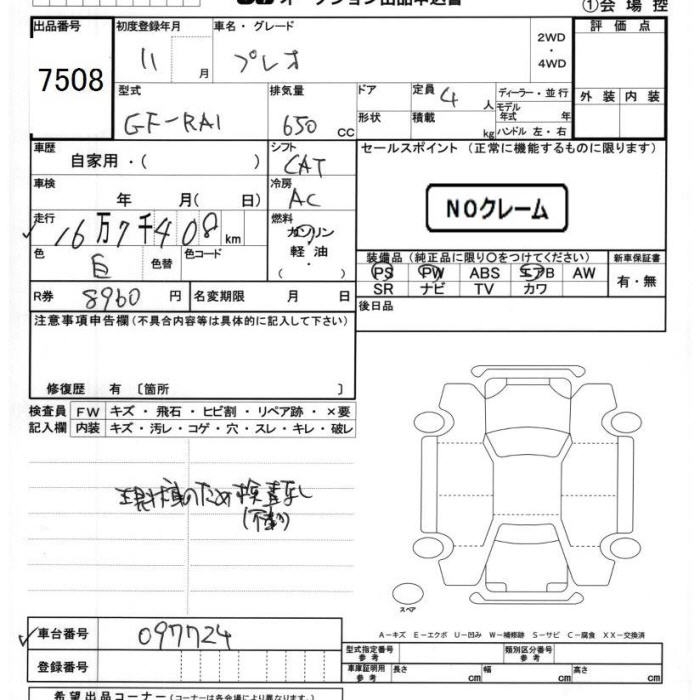 オークション出品申込書 ①会場控
出品番号 初度登録年月 車名・グレード 2WD・4WD 評価点
7508 11 月 プレオ
型式 排気量 ドア 定員 4 人 ディーラー・並行 外装 内装
GF-RA1 650 CC 形状 積載 kg モデル年式 年 ハンドル 左・右
車歴 シフト セールスポイント (正常に機能するものに限ります)
自家用・( ) CAT
車検 冷房 NOクレーム
年 月( 日) AC
走行 16万7千408km 燃料 ガソリン・軽油・( )
色 白 色替 色コード 装備品 (純正品に限り○をつけてください) 新車保証書
PS PW ABS エアB AW 有・無
R券 8960 円 名変期限 月 日 SR ナビ TV カワ
注意事項申告欄 (不具合内容等は具体的に記入して下さい) 後日品
修復歴 有 〔箇所 〕
検査員 FW キズ・飛石・ヒビ割・リペア跡・×要
記入欄 内装 キズ・汚レ・コゲ・穴・スレ・キレ・破レ
現状車のため検査なし
スペア
A-キズ E-エクボ U-凹み W-補修跡 S-サビ C-腐食 XX-交換済
車台番号 097724 型式指定番号 参考 類別区分番号 参考
登録番号 車庫証明用 参考 長さ cm 幅 cm 高さ cm
希望出品コーナー (コーナーは各会場により異なります)